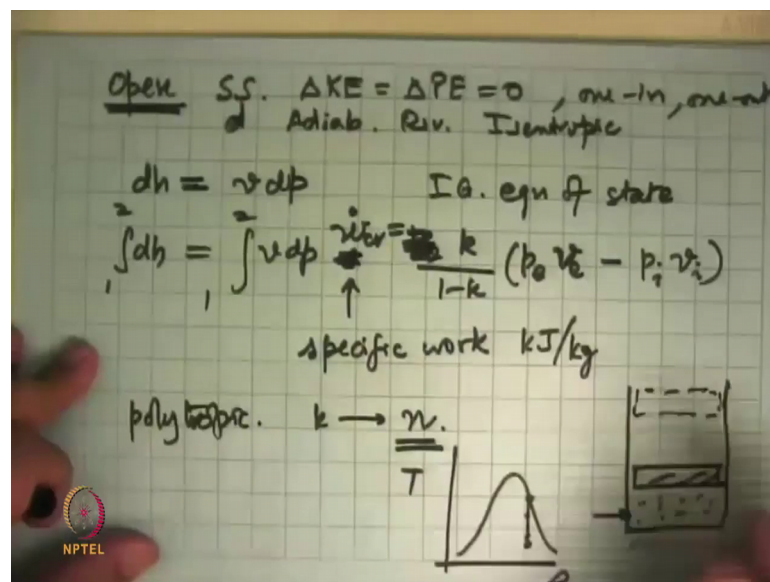 Open SS. ΔKE = ΔPE = 0, one-in, one-out
Adiab. Rev. Isentropic
dh = vdp I.G. eqn of state
∫₁² dh = ∫₁² vdp ẇcv = k/(1-k) (pₑvₑ - pᵢvᵢ)
specific work kJ/kg
polytropic. k → n.
T
NPTEL